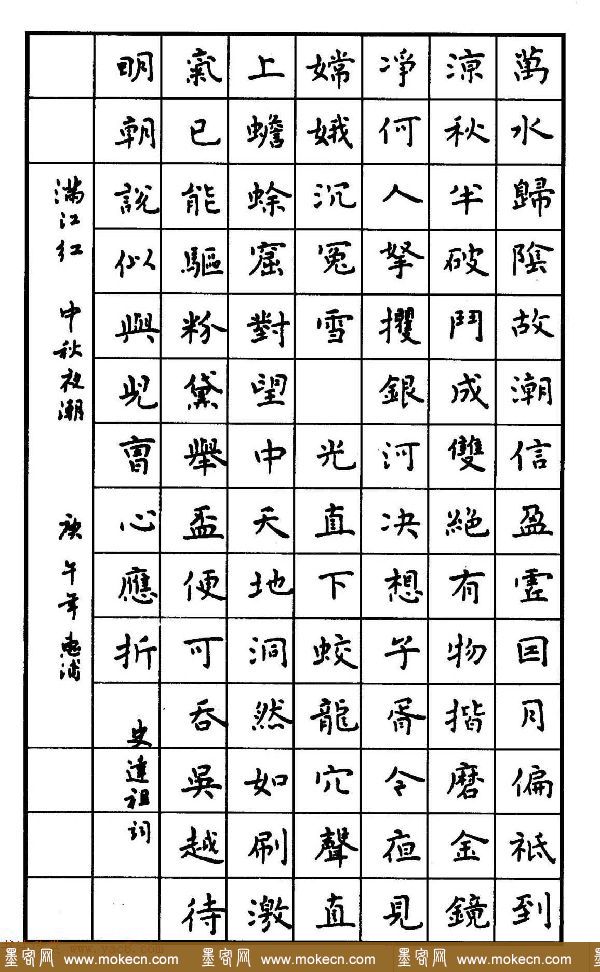 萬水歸陰故潮信盈虛因月偏祗到
涼秋半破鬥成雙絕有物揩磨金鏡
凈何人拏攫銀河決想子胥今夜見
嫦娥沉冤雪 光直下蛟龍穴聲直
上蟾蜍窟對望中天地洞然如刷激
氣已能驅粉黛舉盃便可吞吳越待
明朝說似與兒曹心應折 史達祖詞
滿江紅 中秋夜潮 庚午年惠浦
墨客网 www.mokecn.com 墨客网 www.mokecn.com 墨客网 www.mokecn.com